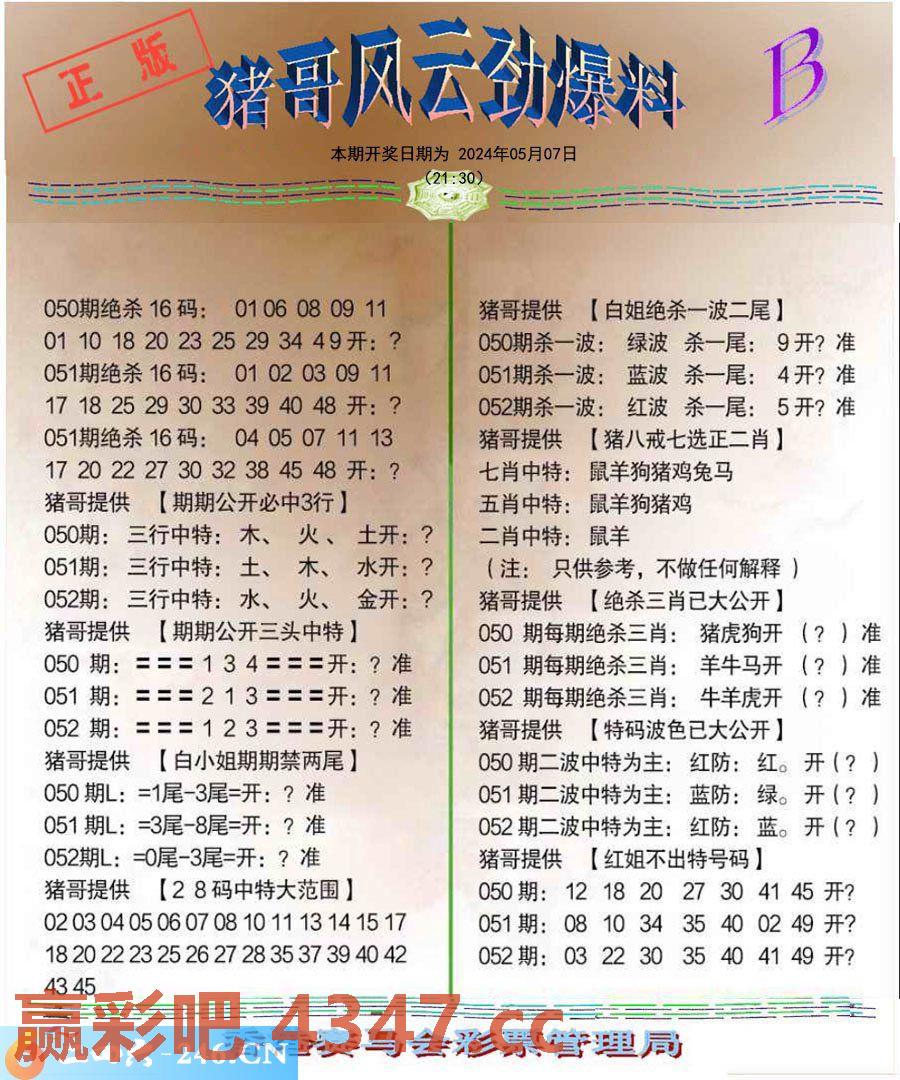 正版
猪哥风云劲爆料
B
本期开奖日期为 2024年05月07日
(21:30)
050期绝杀 16 码： 01 06 08 09 11
01 10 18 20 23 25 29 34 4 9 开：?
051期绝杀 16 码： 01 02 03 09 11
17 18 25 29 30 33 39 40 48 开：?
051期绝杀 16 码： 04 05 07 11 13
17 20 22 27 30 32 38 45 48 开：?
猪哥提供 【期期公开必中3行】
050期： 三行中特： 木、 火 、 土开：?
051期： 三行中特： 土、 木、 水开：?
052期： 三行中特： 水、 火、 金开：?
猪哥提供 【期期公开三头中特】
050 期：〓〓〓 1 3 4 〓〓〓开：? 准
051 期：〓〓〓 2 1 3 〓〓〓开：? 准
052 期：〓〓〓 1 2 3 〓〓〓开：? 准
猪哥提供 【白小姐期期禁两尾】
050 期L：=1尾-3尾=开：? 准
051 期L：=3尾-8尾=开：? 准
052期L：=0尾-3尾=开：? 准
猪哥提供 【2 8 码中特大范围】
02 03 04 05 06 07 08 10 11 13 14 15 17
18 20 22 23 25 26 27 28 35 37 39 40 42
43 45
猪哥提供 【白姐绝杀一波二尾】
050期杀一波： 绿波 杀一尾： 9 开? 准
051期杀一波： 蓝波 杀一尾： 4 开? 准
052期杀一波： 红波 杀一尾： 5 开? 准
猪哥提供 【猪八戒七选正二肖】
七肖中特： 鼠羊狗猪鸡兔马
五肖中特： 鼠羊狗猪鸡
二肖中特： 鼠羊
(注： 只供参考，不做任何解释 )
猪哥提供 【绝杀三肖已大公开】
050 期每期绝杀三肖： 猪虎狗开 (？) 准
051 期每期绝杀三肖： 羊牛马开 (？) 准
052 期每期绝杀三肖： 牛羊虎开 (？) 准
猪哥提供 【特码波色已大公开】
050 期二波中特为主： 红防： 红。 开 (？)
051 期二波中特为主： 蓝防： 绿。 开 (？)
052 期二波中特为主： 红防： 蓝。 开 (？)
猪哥提供 【红姐不出特号码】
050 期： 12 18 20 27 30 41 45 开?
051 期： 08 10 34 35 40 02 49 开?
052 期： 03 22 30 35 40 41 49 开?
赢彩吧 4347.cc
马会彩票管理局